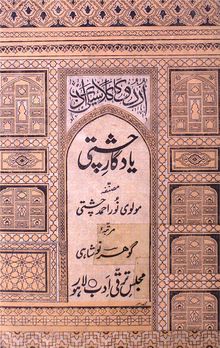 اردو کا کلاسیکی ادب
یادگارِ چشتی
مصنفہ
مولوی نور احمد چشتی
مرتبہ
گوہر نوشاہی
مجلس ترقی ادب لاہور